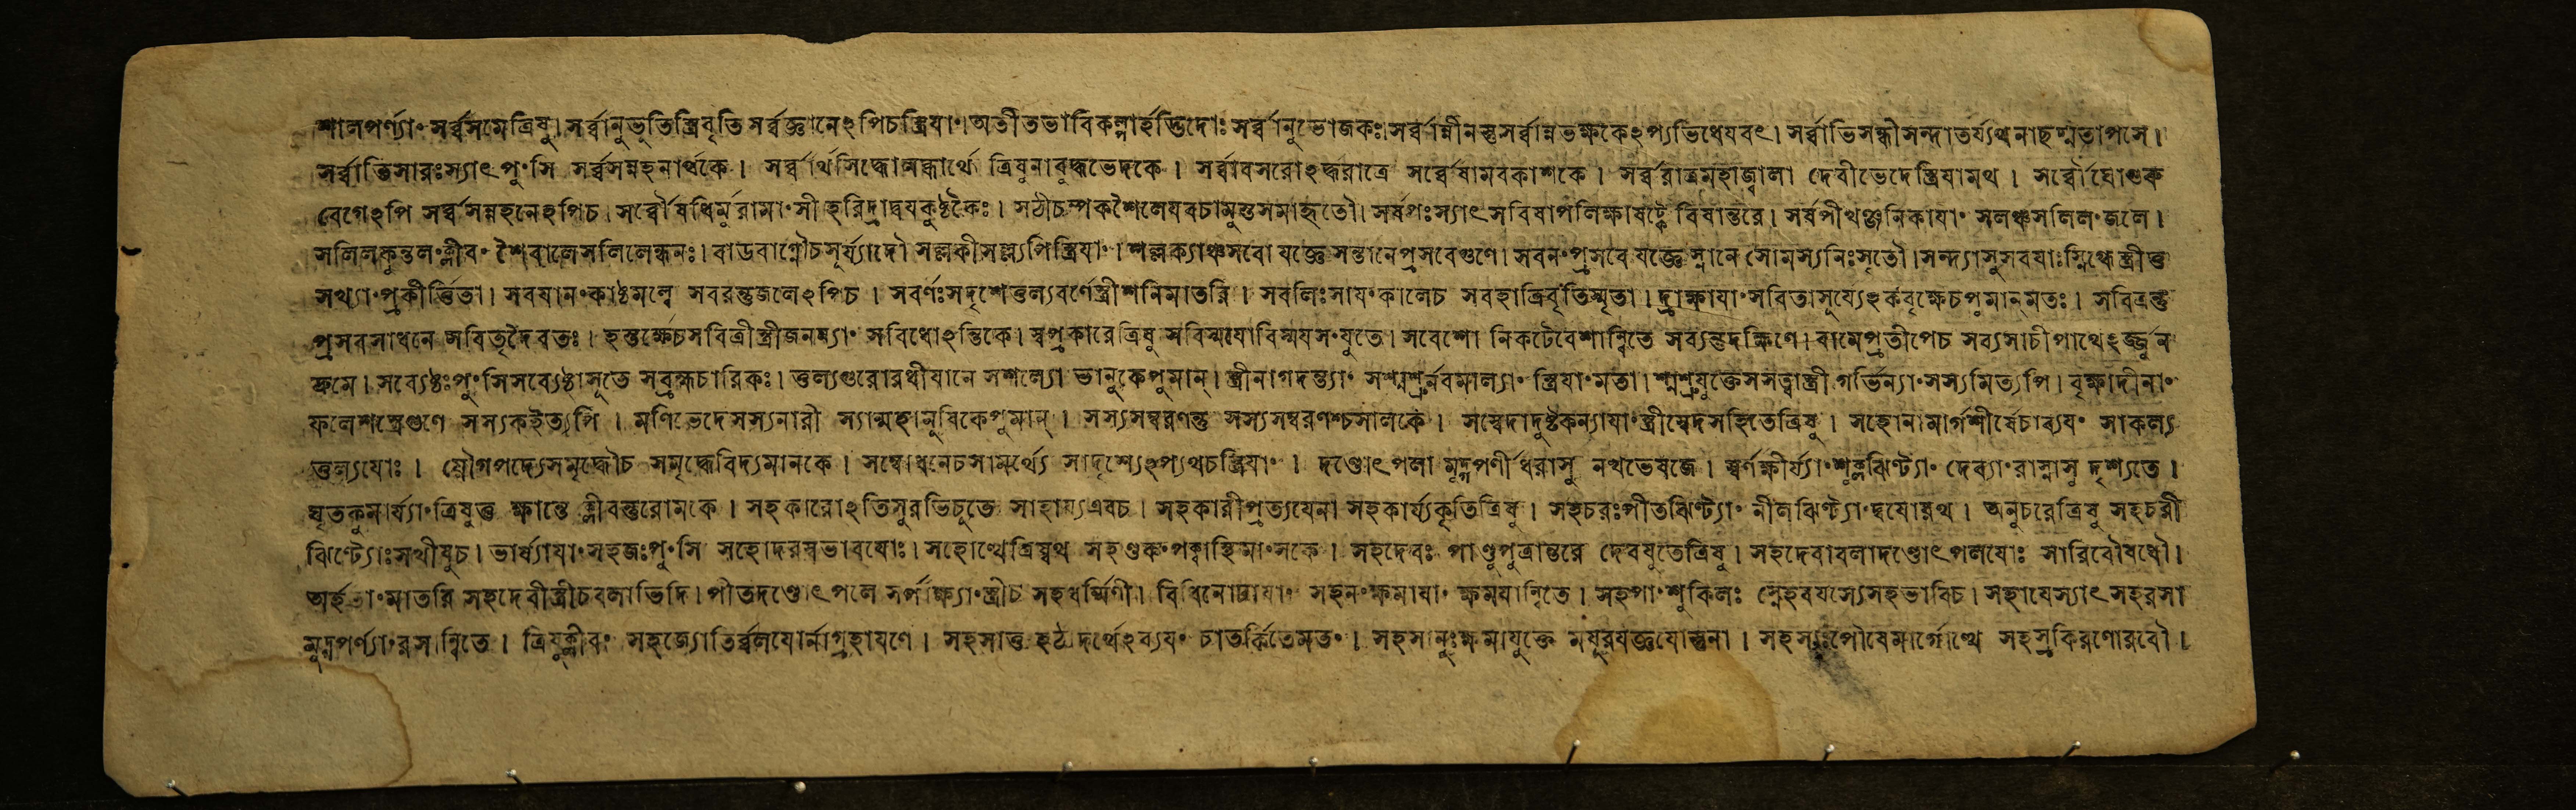 শালপর্ণ্যাং সর্ব্বসমেত্রিষু। সর্ব্বানুভুতিস্ত্রিবৃতি সর্ব্বজ্ঞানেঽপিচস্ত্রিযাং। অতীতভাবিকল্পার্হদ্ভিদোঃ সর্ব্বানুভোজকঃ। সর্ব্বান্নীনস্তুসর্ব্বান্নভক্ষকেঽপ্যভিধেযবৎ। সর্ব্বাভিসন্ধী
সর্ব্বাভিসারঃস্যাৎপুংসি সর্ব্বসন্নহনার্থকে। সর্ব্বার্থসিদ্ধোলব্ধার্থে ত্রিষুনাবুদ্ধভেদকে। সর্ব্বাবসরোঽর্দ্ধরাত্রে সর্ব্বেষামবকাশকে। সর্ব্বরাত্রমহাজ্বালা দেবীভেদেস্ত্রিযামথ। সর্ব্বৌঘোগুরু
বেগেঽপি সর্ব্বসন্নহনেঽপিচ। সর্ব্বৌষধিমুর্রামাংসী হরিদ্রাদ্বযকুষ্ঠকৈঃ। সঠীচম্পকশৈলেযবচামুস্তসমাহৃতৌ। সর্ষপঃস্যাৎসবিষাপলিক্ষাষট্কে বিষান্তরে। সর্ষপীখঞ্জনিকাযাং সলঞ্চসলিলংজলে।
সলিলকুন্তলংক্লীবং শৈবালেসলিলেন্ধনঃ। বাডবাগ্নৌচসূর্য্যাদৌ সল্লকীসল্ল্যপিস্ত্রিযাং। শল্লক্যাঞ্চসবো যজ্ঞে সন্তানেপ্রসবেগুণে। সবনংপ্রসবে যজ্ঞেস্নানে সোমস্যনিঃসৃতৌ। সন্দ্যাসুসবযাঃস্নিগ্ধেস্ত্রীতু
সখ্যাংপ্রকীর্ত্তিতা। সবযানংকাষ্ঠমল্লে সবরস্তুজলেঽপিচ। সবর্ণঃসদৃশেতুল্যবর্ণেস্ত্রীশনিমাতরি। সবলিঃসাযংকালেচ সবহাত্রিবৃতিস্মৃতা। দ্রাক্ষাযাং সবিতাসূর্য্যেঽর্কবৃক্ষেচপুমান্মতঃ। সবিত্রন্তু
প্রসবসাধনে সবিতৃদৈবতঃ। হস্তর্ক্ষেচসবিত্রীস্ত্রীজনন্যাং সবিধোঽন্তিকে। স্বপ্রকারেত্রিষু সবিস্মযোবিস্মযসংযুতে। সবেশো নিকটেবেশান্বিতে সব্যন্তুদক্ষিণে। বামেপ্রতীপেচ সব্যসাচীপার্থেঽর্জ্জুন
দ্রুমে। সব্যেষ্ঠঃপুংসিসব্যেষ্ঠাসূতে সব্রহ্মচারিকঃ। তুল্যগুরোরধীযানে সশল্যো ভালুকেপুমান্। স্ত্রীনাগদন্ত্যাং সশ্মশ্রুর্নবমাল্যাং স্ত্রিযাংমতা। শ্মশ্রুযুক্তেসসত্ত্বাস্ত্রী গর্ভিন্যাংসস্যমিত্যপি। বৃক্ষাদীনাং
ফলেশস্ত্রেগুণে সস্যকইত্যপি। মণিভেদেসস্যনারী স্যান্মহামুষিকেপুমান্। সস্যসম্বরণন্তু সস্যসম্বরণশ্চসালকে। সস্বেদাদুষ্টকন্যাযাংস্ত্রীস্বেদসহিতেত্রিষু। সহোনামার্গশীর্ষেচাব্যযং সাকল্য
তুল্যযোঃ। যৌগপদ্যেসমৃদ্ধৌচ সমৃদ্ধেবিদ্যমানকে। সম্বোধনেচসামর্থ্যে সাদৃশ্যেঽপ্যথচস্ত্রিযাং। দণ্ডোৎপলা মুদ্গপর্ণীধরাসু নখভেষজে। স্বর্ণক্ষীর্য্যাংশুক্লঝিণ্ট্যাং দেব্যাংরাস্নাসু দৃশ্যতে।
ঘৃতকুমার্য্যাংত্রিষুতু ক্ষান্তে ক্লীবন্তুরোমকে। সহকারোঽতিসুরভিচুতে সাহায্যএবচ। সহকারীপ্রত্যযেনা সহকার্য্যকৃতিত্রিষু। সহচরঃপীতঝিণ্ট্যাং নীলঝিণ্ট্যাংদ্বযোরথ। অনুচরেত্রিষু সহচরী
ঝিণ্ট্যোঃসখীষুচ। ভার্য্যাযাংসহজঃপুংসি সহোদরস্বভাবযোঃ। সহোত্থেত্রিষ্বথ সহণ্ডুকংপক্বাহিমাংসকে। সহদেবঃ পাণ্ডুপুত্রান্তরে দেবযুতেত্রিষু। সহদেবাবলাদণ্ডোৎপলযোঃ সারিবৌষধৌ।
অর্হতাংমাতরি সহদেবীস্ত্রীচবলাভিদি। পীতদণ্ডোৎপলে সর্পাক্ষ্যাংস্ত্রীচ সহধর্ম্মিণী। সহনংক্ষমাযাং ক্ষমযান্বিতে। সহপাংশুকিলঃ স্নেহবযস্যেসহভাবিচ। সহাযেস্যাৎসহরসা
মুদ্গপর্ণ্যাংরসান্বিতে। ত্রিষুক্লীবং সহজ্যোতির্ব্বলযোর্নাগ্রহাযণে। সহসাতু হঠাদর্থেঽব্যযং চাতর্কিতেমতং। সহসানুঃক্ষমাযুক্তে মযুরযজ্ঞযোস্তুনা। সহস্যঃপৌষেমার্গোত্থে সহস্রকিরণোরবৌ।